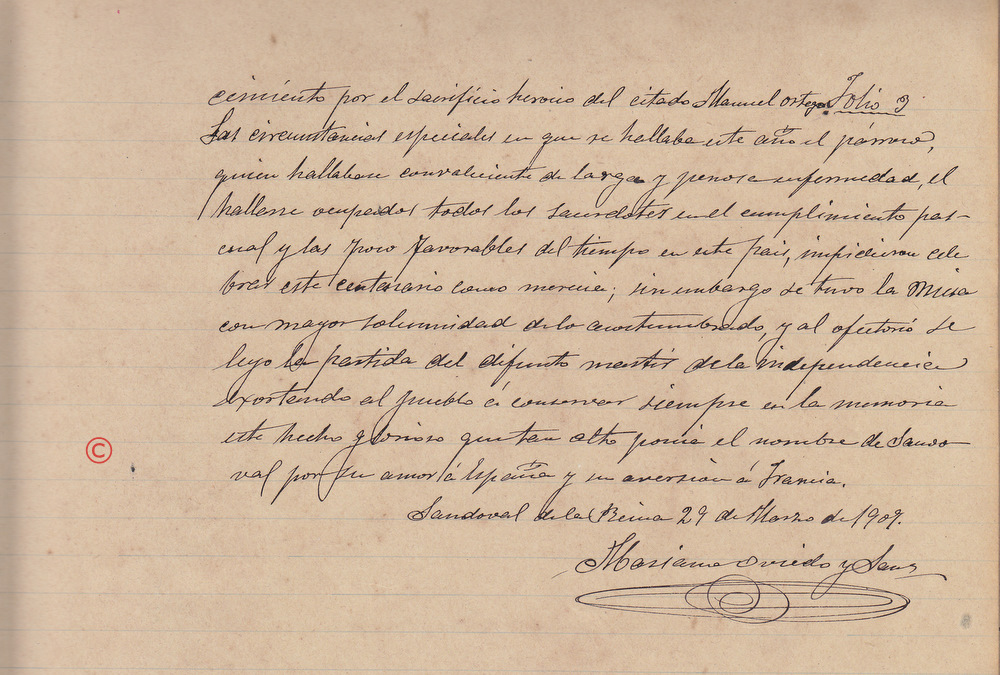 cimiento por el sacrificio heroico del citado Manuel Ortega. Folio 3
Las circunstancias especiales en que se hallaba este año el párroco,
quien hallabase convaleciente de larga y penosa enfermedad, el
hallarse ocupados todos los sacerdotes en el cumplimiento pas-
cual y las poco favorables del tiempo en este pais, impidieron cele
brar este centenario como merecia; sin embargo se tuvo la Misa
con mayor solemnidad de lo acostumbrado, y al ofertorio se
leyo la partida del difunto martir de la independencia
exortando al pueblo á conservar siempre en la memoria
este hecho glorioso que tan alto ponia el nombre de Sando
val por su amor á España y su aversion á Francia.
Sandoval de la Reina 29 de Marzo de 1909.
Mariano Oviedo y Sanz
©